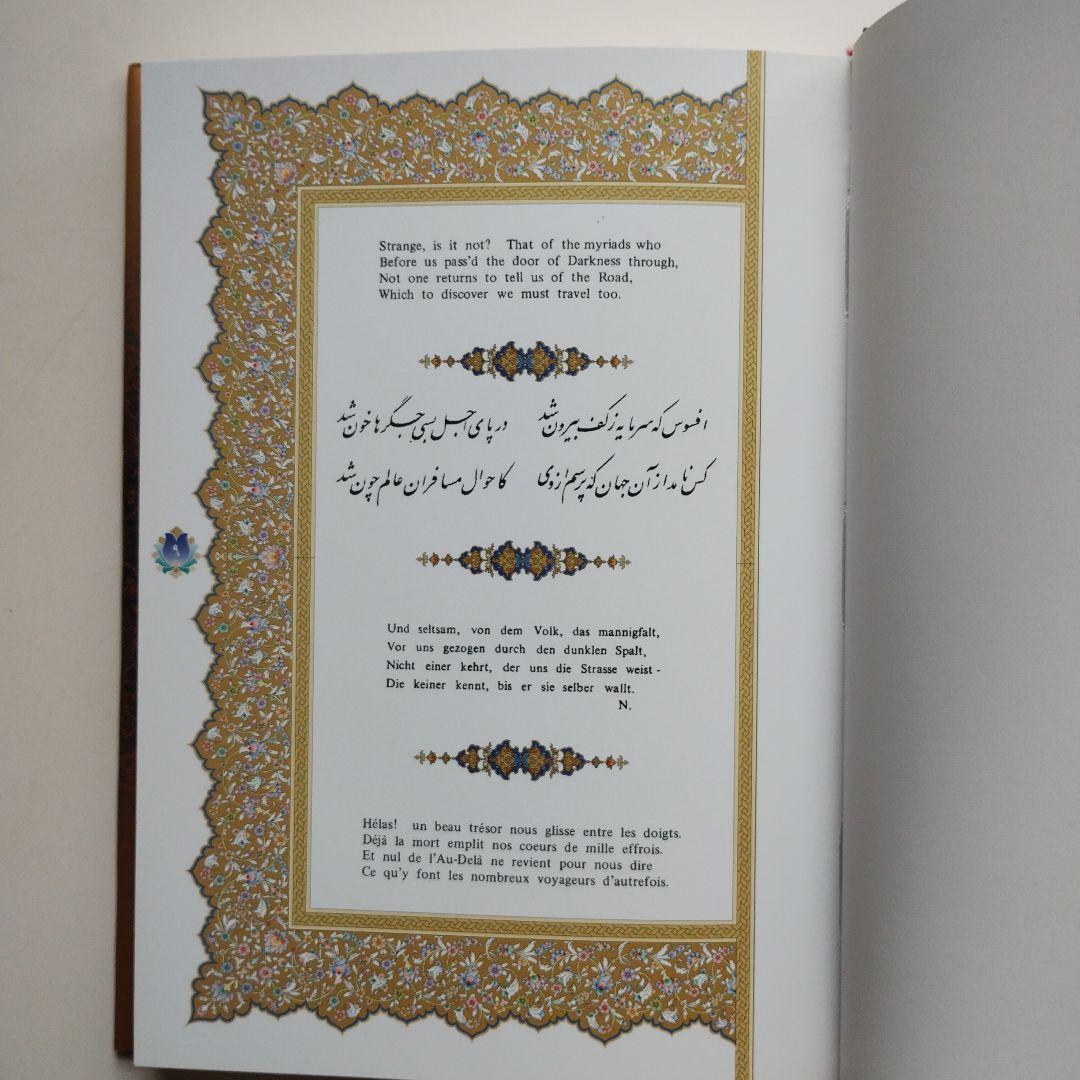 Strange, is it not? That of the myriads who
Before us pass'd the door of Darkness through,
Not one returns to tell us of the Road,
Which to discover we must travel too.
افسوس که سرمایه ز کف بیرون شد در پای اجل بسی جگرها خون شد
کس نامد از آن جهان که پرسم از وی کاحوال مسافران عالم چون شد
۹
Und seltsam, von dem Volk, das mannigfalt,
Vor uns gezogen durch den dunklen Spalt,
Nicht einer kehrt, der uns die Strasse weist -
Die keiner kennt, bis er sie selber wallt.
N.
Hélas! un beau trésor nous glisse entre les doigts.
Déjà la mort emplit nos coeurs de mille effrois.
Et nul de l'Au-Delà ne revient pour nous dire
Ce qu'y font les nombreux voyageurs d'autrefois.